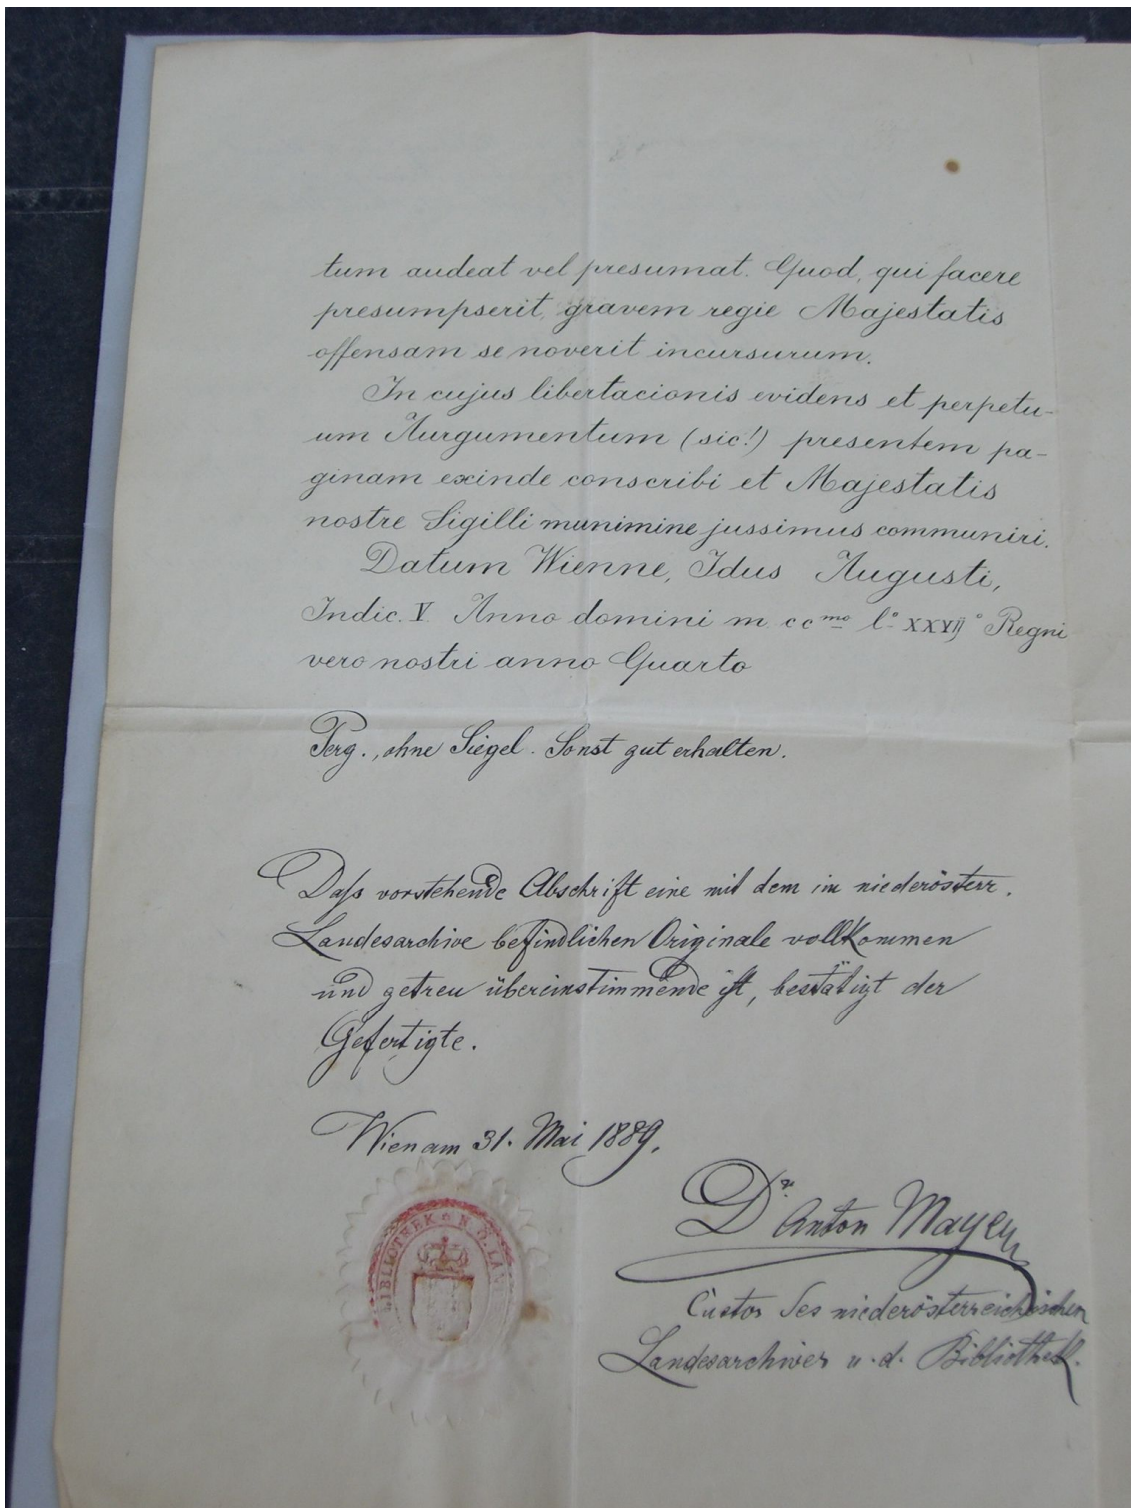 tum audeat vel presumat. Quod, qui facere
presumpserit, gravem regie Majestatis
offensam se noverit incursurum.
In cujus libertacionis evidens et perpetu-
um Aurgumentum (sic!) presentem pa-
ginam exinde conscribi et Majestatis
nostre Sigilli munimine jussimus communiri.
Datum Wienne, Idus Augusti,
Indic. V. Anno domini m ccmo lo XXVIJo Regni
vero nostri anno Quarto
Perg., ohne Siegel. Sonst gut erhalten.
Daß vorstehende Abschrift eine mit dem im niederösterr.
Landesarchive befindlichen Originale vollkommen
und getreu übereinstimmende ist, bestätigt der
Gefertigte.
Wien am 31. Mai 1889.
Dr. Anton Mayer
Custos des niederösterreichischen
Landesarchives u. d. Bibliothek.
BIBLIOTHEK N. Ö.